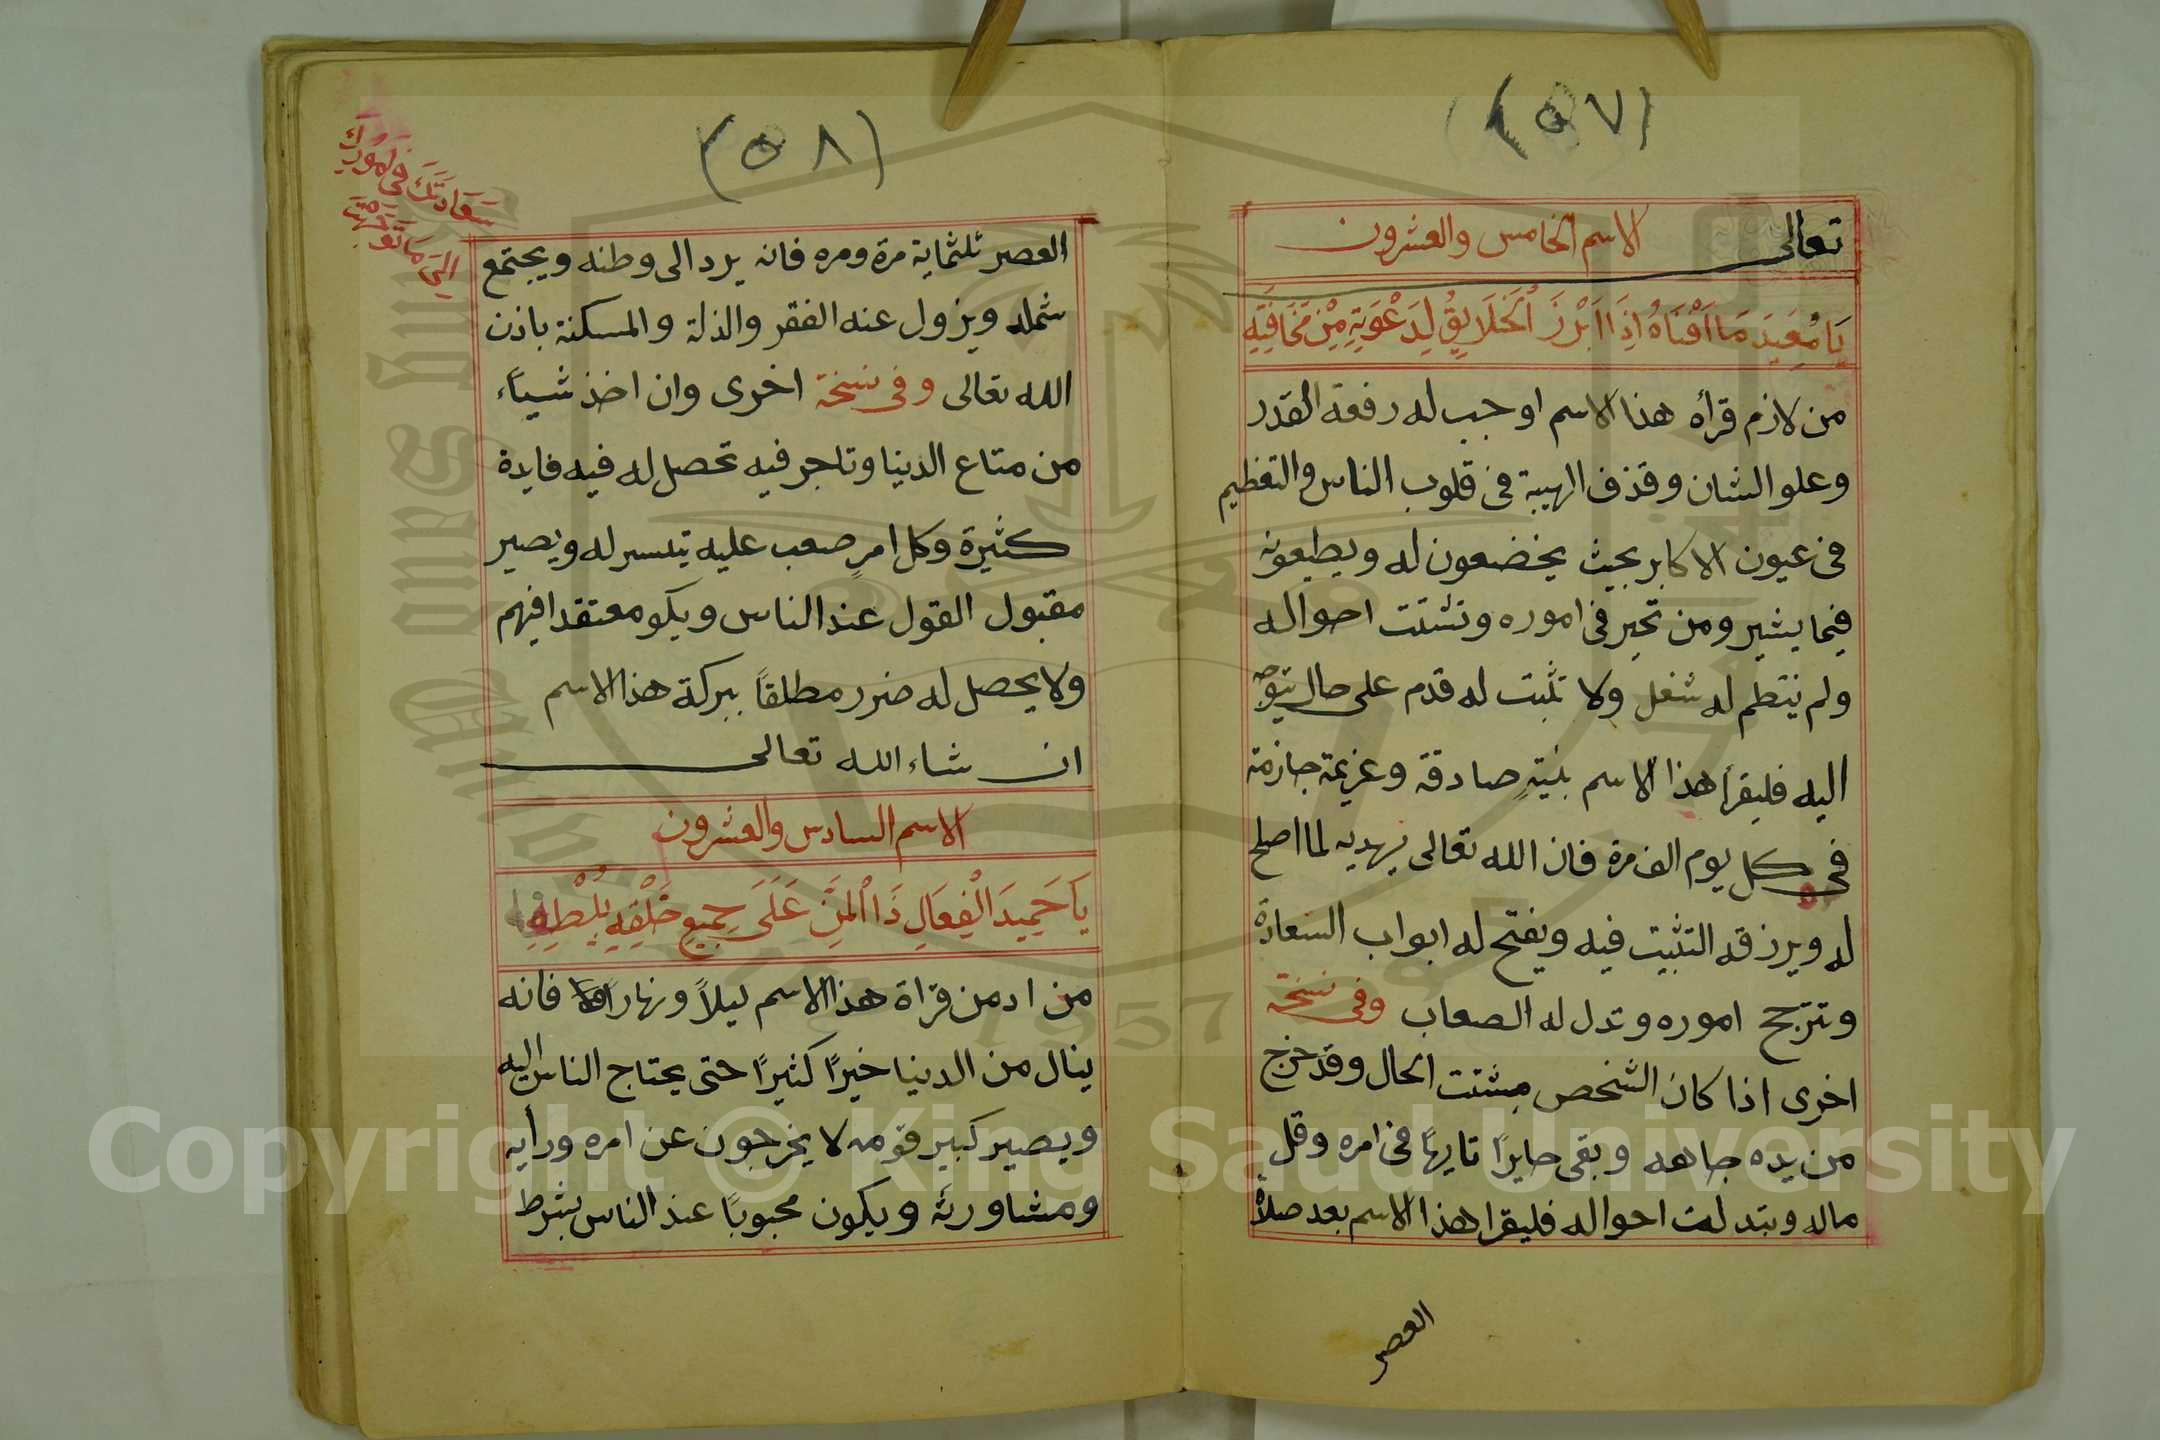 (٥٧)
تعالى الاسم الخامس والعشرون
يَا مُعِيدَ مَا اَفْنَاهُ اِذَا اَبْرَزَ اْلخَلَايِقُ لِدَعْوَتِهِ مِنْ مَخَافَتِهِ
من لازم قرأه هذا الاسم اوجب له رفعة القدر
وعلو الشان وقذف الهيبة فى قلوب الناس والتعظيم
فى عيون الاكابر بحيث يخضعون له ويطيعونه
فيما يشير ومن تحير فى اموره وتشتت احواله
ولم ينتظم له شغل ولا تثبت له قدم على حال يتوجه
اليه فليقرأ هذا الاسم بنيةٍ صادقة وعزيمة جازمة
فى كل يوم الف مرة فان الله تعالى يهديه لما اصلح
له ويرزقه التثبيت فيه ويفتح له ابواب السعادة
وتترجح اموره وتدل له الصعاب وفى نسخة
اخرى اذا كان الشخص مشتت الحال وقد خرج
من يده جاهه وبقى حايرًا تايهًا فى امره وقل
ماله وتبدلت احواله فليقرا هذا الاسم بعد صلاة
العصر
(٥٨)
العصر ثلثماية مرة ومره فانه يرد الى وطنه ويجتمع
شمله ويزول عنه الفقر والذلة والمسكنة باذن
الله تعالى وفى نسخة اخرى وان اخذ شيأ
من متاع الدنيا وتاجر فيه تحصل له فيه فايدة
كثيرة وكل امرٍ صعب عليه تيسر له ويصير
مقبول القول عند الناس ويكو معتقدا فيهم
ولا يحصل له ضرر مطلقاً ببركة هذا الاسم
ان شاء الله تعالى
الاسم السادس والعشرون
يَا حَمِيدَ الْفِعَالِ ذَا اْلمَنِّ عَلَى جَمِيعِ خَلْقِهِ بِلُطْفِهِ
من ادمن قراة هذا الاسم ليلاً ونهاراً فانه
ينال من الدنيا خيرًا كثيرًا حتى يحتاج الناس اليه
ويصير كبير قومه لا يخرجون عن امره ورأيه
ومشاورته ويكون محبوبًا عند الناس بشرط
Copyright © King Saud University
1957